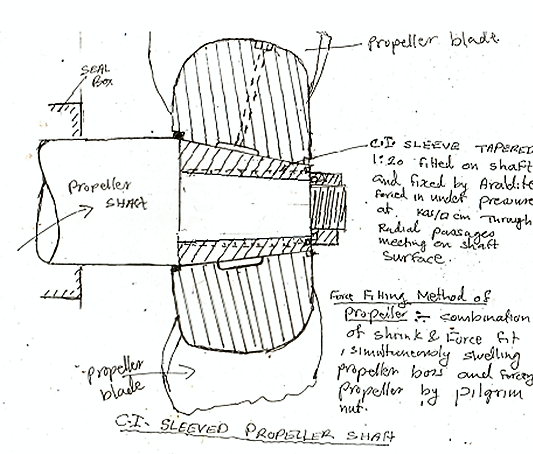 propeller blade
SEAL
BOX
C.I. SLEEVE TAPERED
1:20 fitted on shaft
and fixed by Araldite
forced in under pressure
at Kgs/□ cm Through
Radial passages
meeting on shaft
surface.
Propeller
SHAFT
Force Fitting Method of
Propeller :- combination
of shrink & Force fit
, simultaneously swelling
propeller boss and forcing
propeller by pilgrim
nut.
propeller
blade
C.I. SLEEVED PROPELLER SHAFT